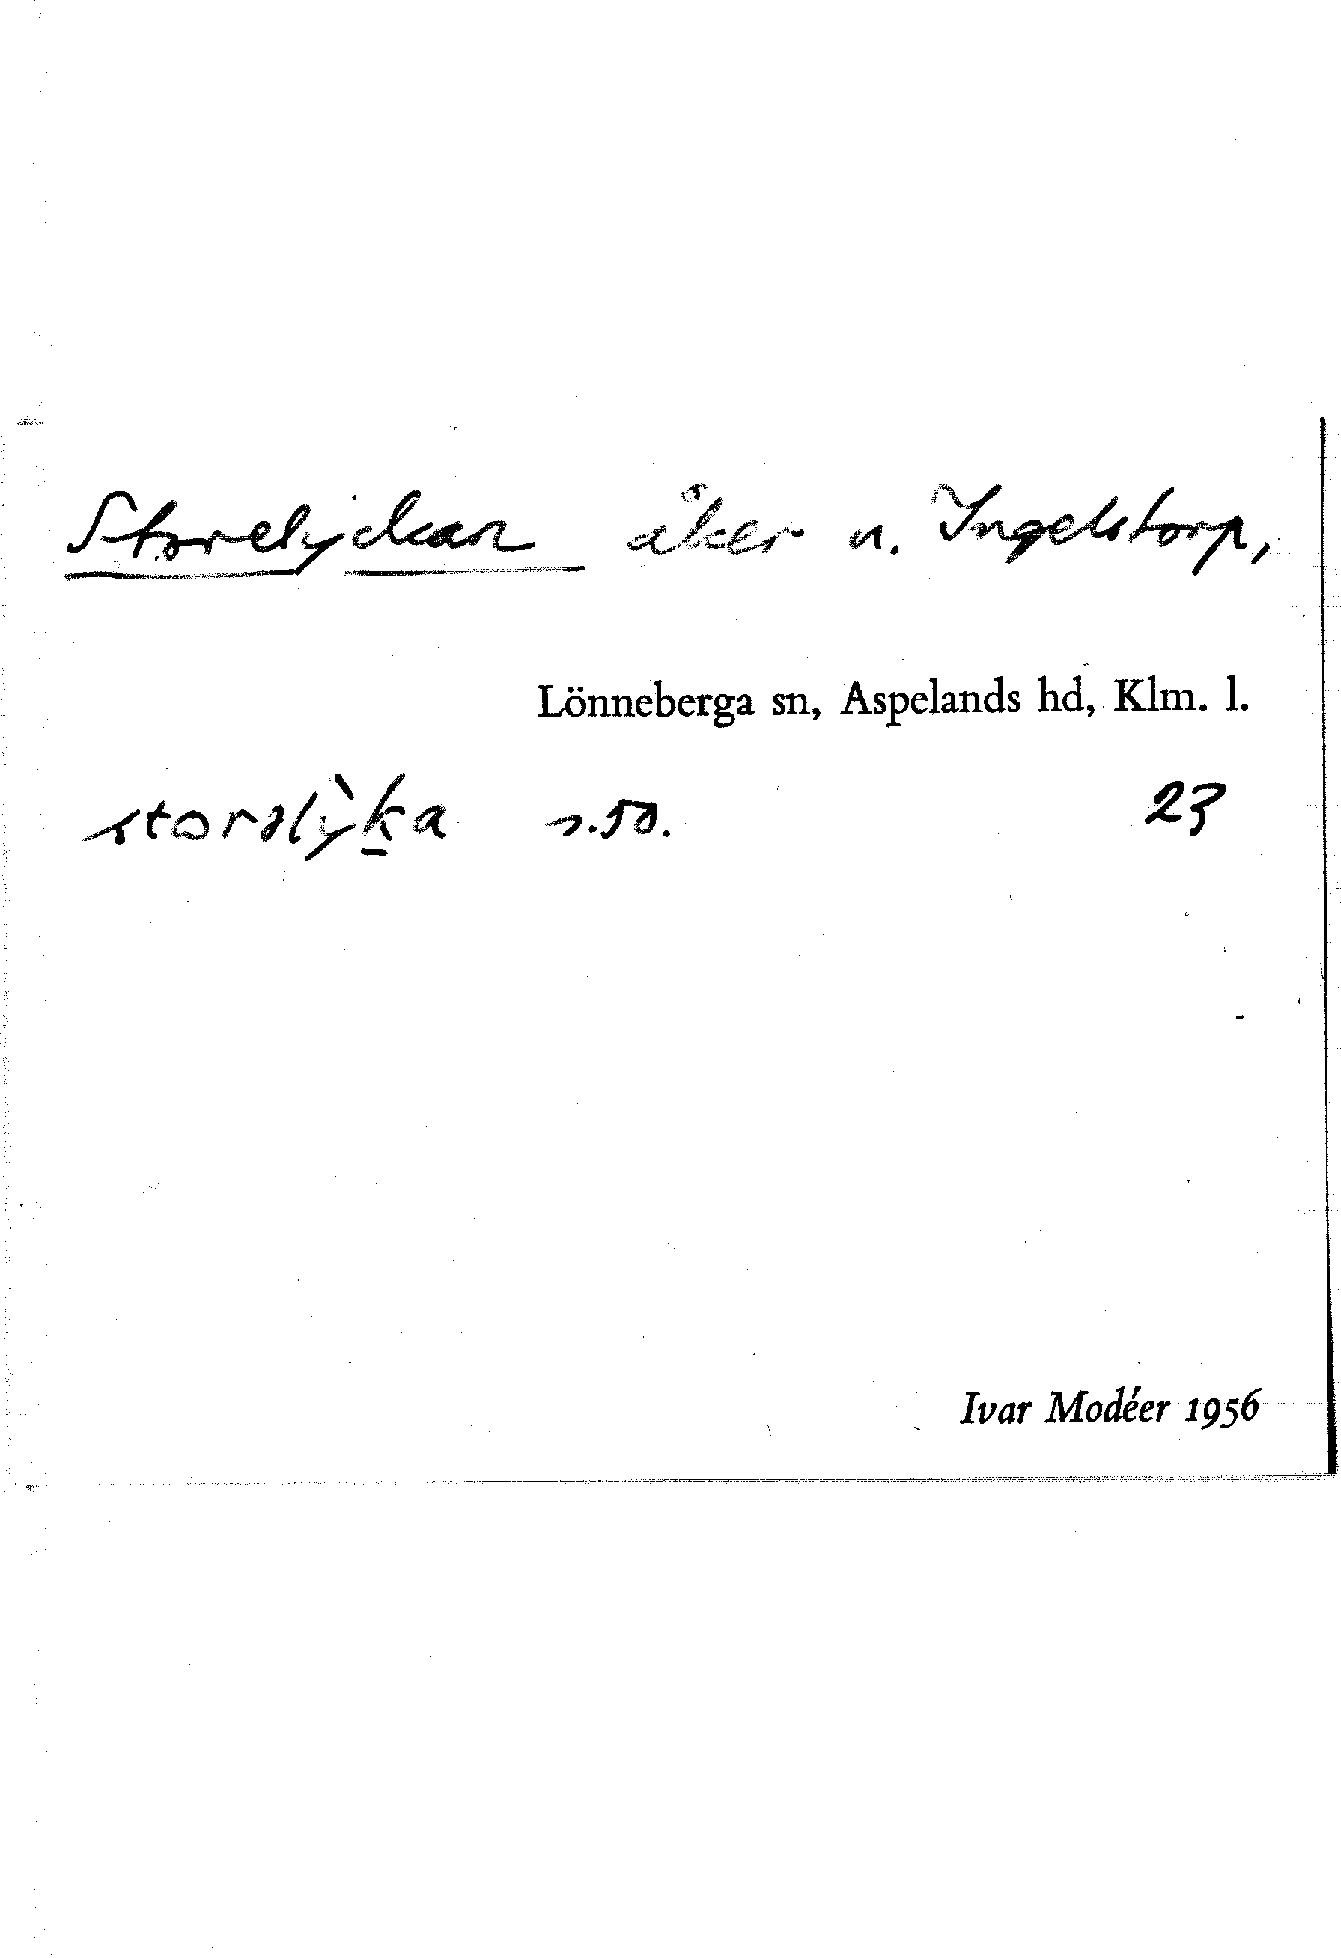 Storelyckan åker u. Ingelstorp,
Lönneberga sn, Aspelands hd, Klm. l.
storəlỳḵa 23
Ivar Modéer 1956